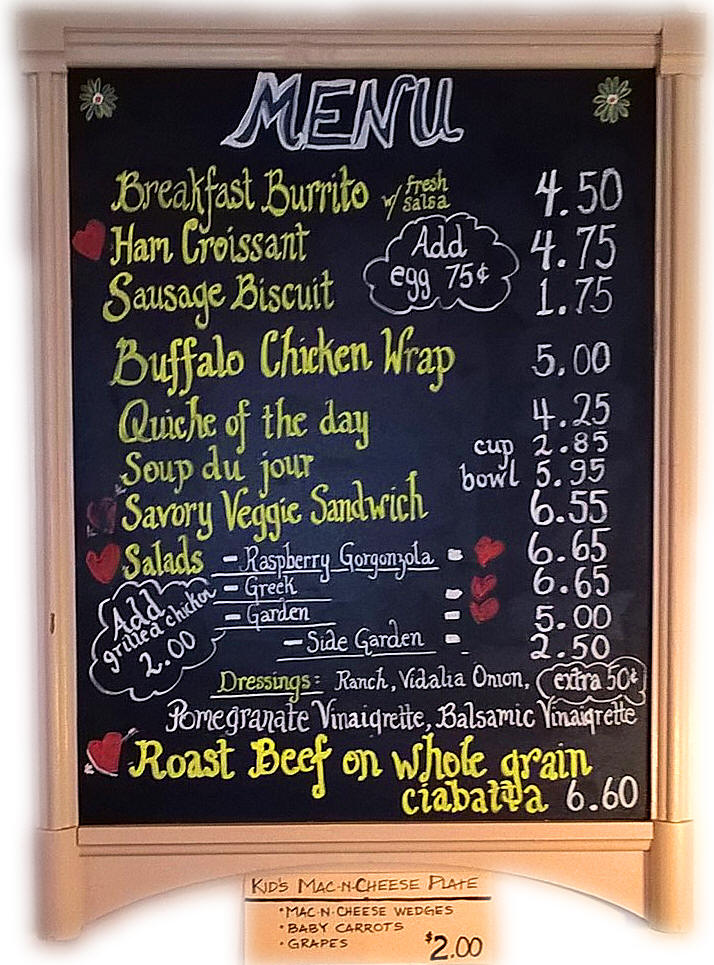 MENU
Breakfast Burrito w/ fresh salsa 4.50
Ham Croissant 4.75
Add egg 75¢
Sausage Biscuit 1.75
Buffalo Chicken Wrap 5.00
Quiche of the day 4.25
Soup du jour cup 2.85
bowl 5.95
Savory Veggie Sandwich 6.55
Salads - Raspberry Gorgonzola - 6.65
- Greek - 6.65
- Garden - 5.00
- Side Garden - 2.50
Add grilled chicken 2.00
Dressings: Ranch, Vidalia Onion, extra 50¢
Pomegranate Vinaigrette, Balsamic Vinaigrette
Roast Beef on whole grain
ciabatta 6.60
KID'S MAC-N-CHEESE PLATE
• MAC-N-CHEESE WEDGES
• BABY CARROTS
• GRAPES $2.00